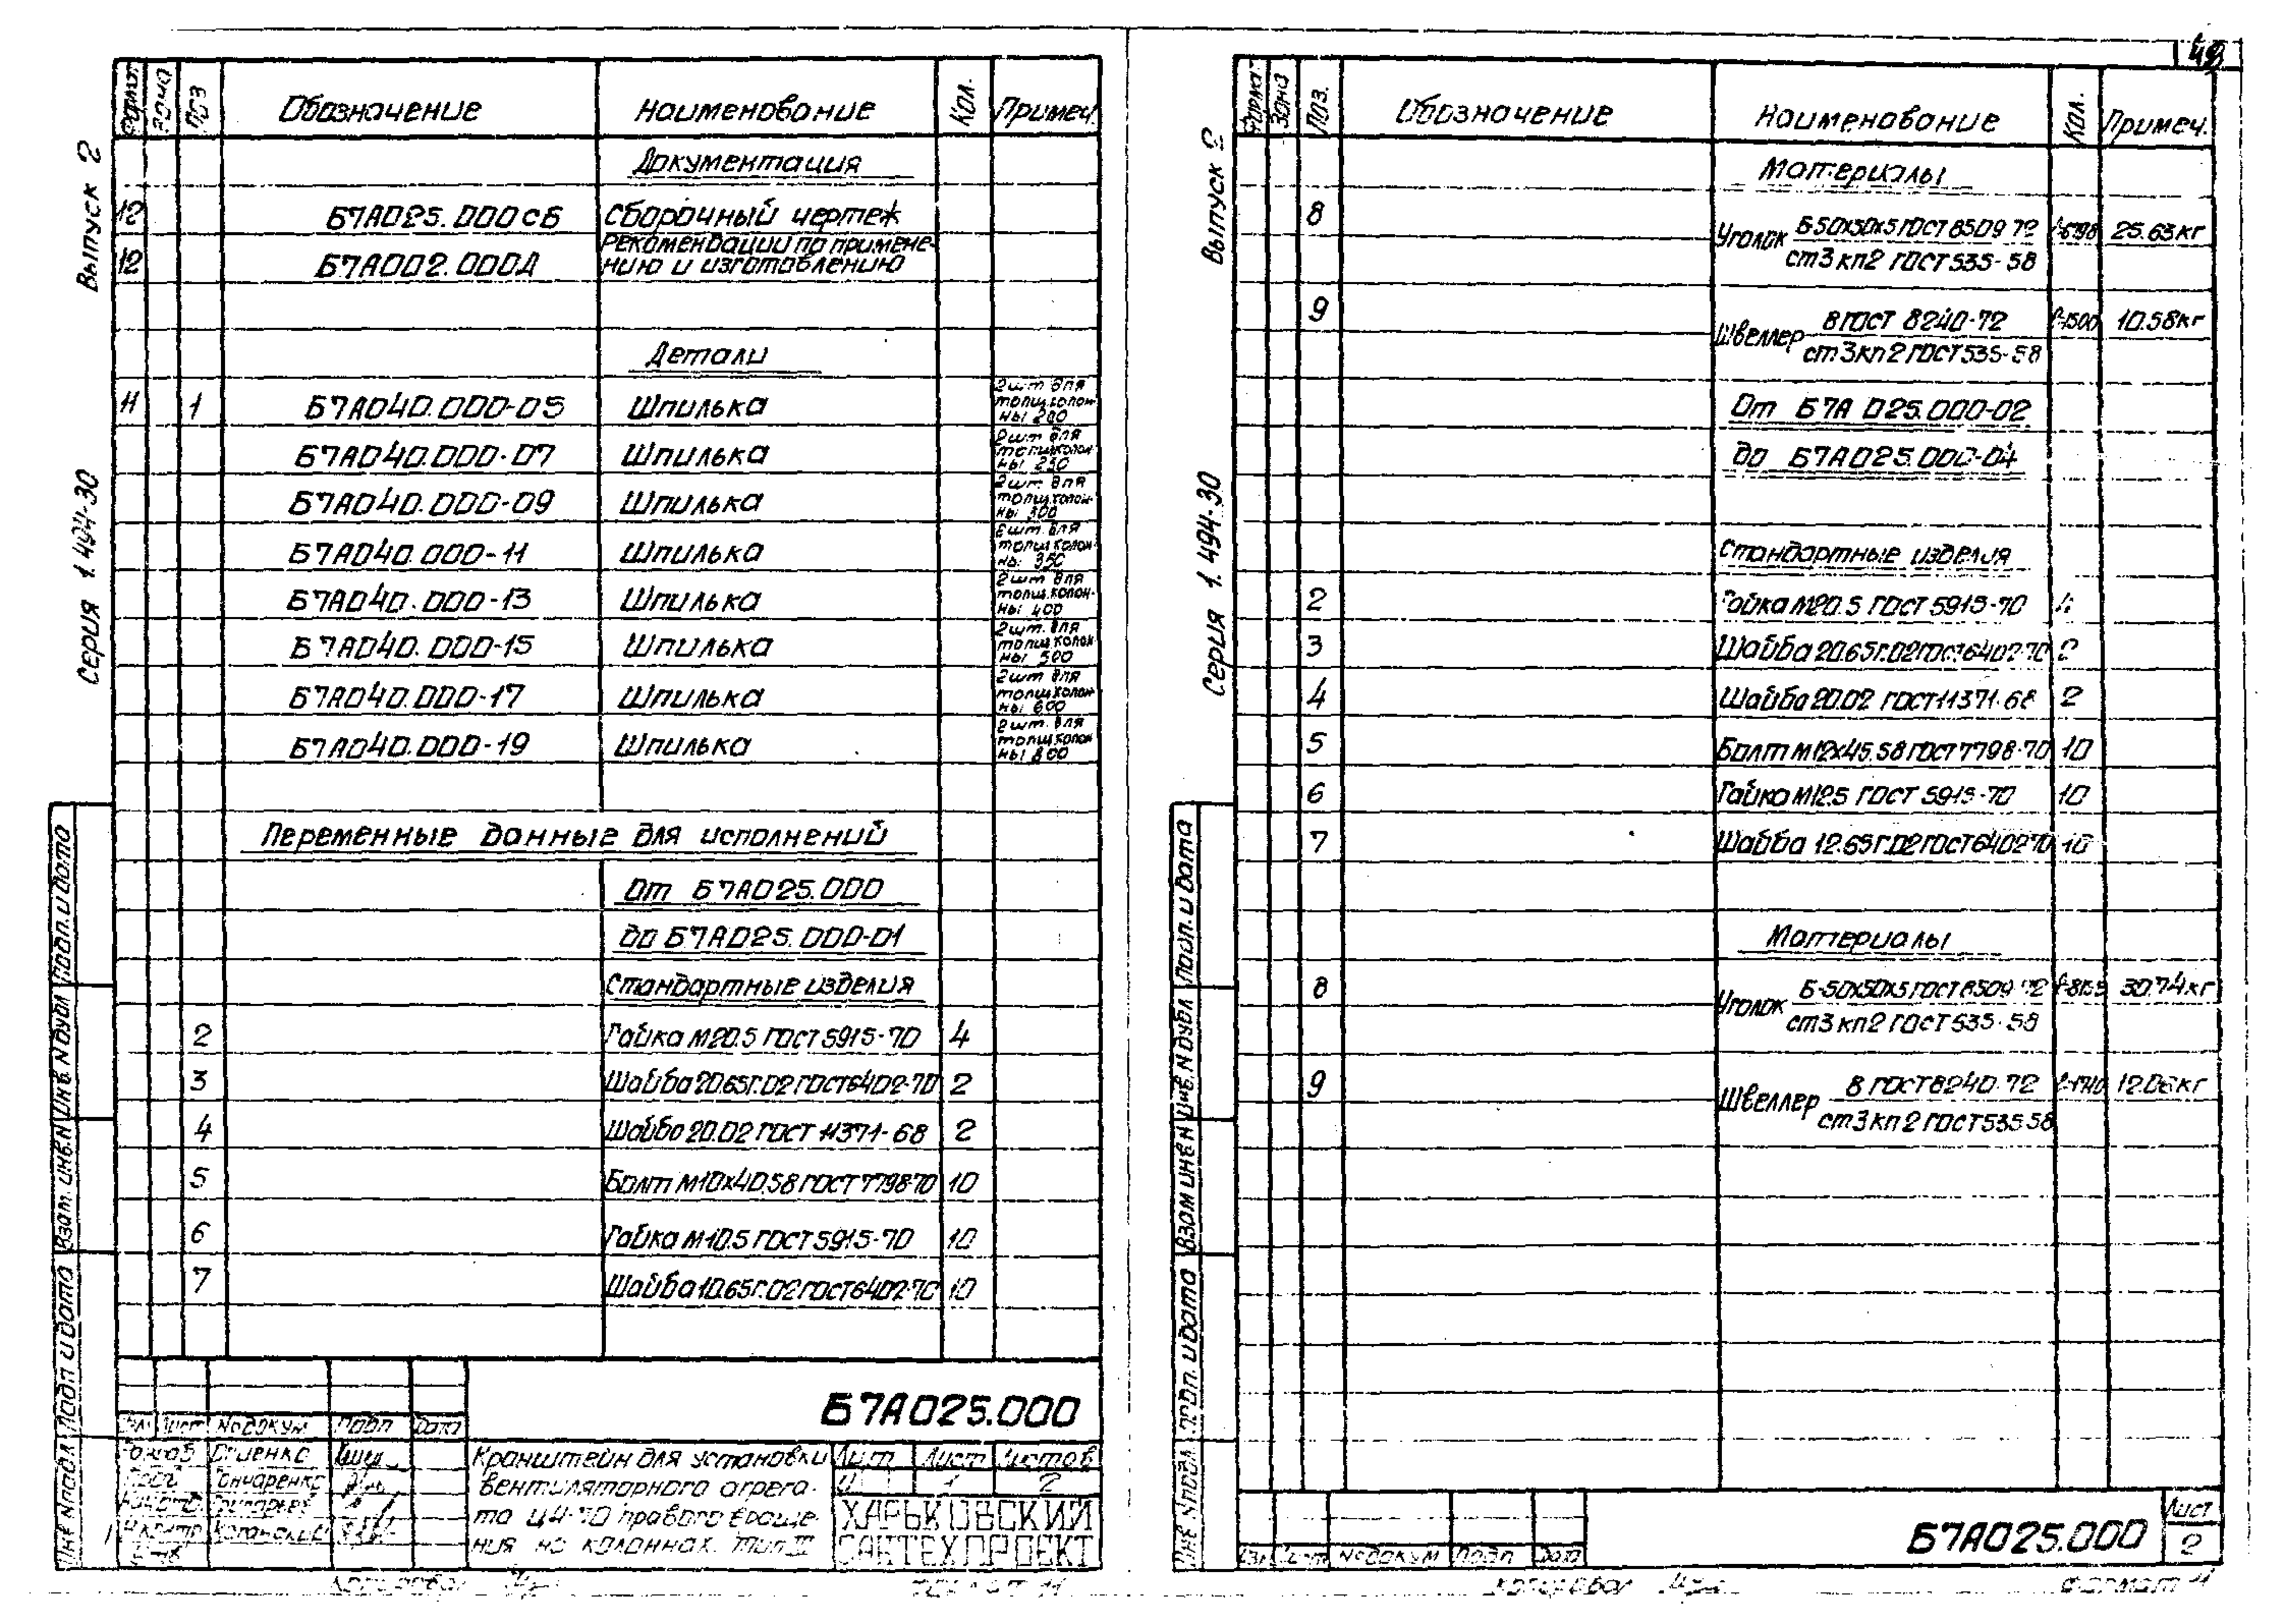 Выпуск 2
Серия 1.494-30
Формат Зона Поз Обозначение Наименование Кол. Примеч.
Документация
12 Б7А025.000СБ Сборочный чертеж
12 Б7А002.000Д Рекомендации по примене-
нию и изготовлению
Детали
11 1 Б7А040.000-05 Шпилька 2шт для толщ.колон-ны 200
Б7А040.000-07 Шпилька 2шт для толщ.колон-ны 250
Б7А040.000-09 Шпилька 2шт для толщ.колон-ны 300
Б7А040.000-11 Шпилька 2шт. для толщ.колон-ны 350
Б7А040.000-13 Шпилька 2шт для толщ.колон-ны 400
Б7А040.000-15 Шпилька 2шт. для толщ.колон-ны 500
Б7А040.000-17 Шпилька 2шт для толщ.колон-ны 600
Б7А040.000-19 Шпилька 2шт. для толщ.колон-ны 800
Переменные данные для исполнений
От Б7А025.000
до Б7А025.000-01
Стандартные изделия
2 Гайка М20.5 ГОСТ 5915-70 4
3 Шайба 20.65Г.02 ГОСТ 6402-70 2
4 Шайба 20.02 ГОСТ 11371-68 2
5 Болт М10х40.58 ГОСТ 7798-70 10
6 Гайка М10.5 ГОСТ 5915-70 10
7 Шайба 10.65Г.02 ГОСТ 6402-70 10
Инв.№подл. Подп. и дата Взам. инв.№ Инв.№дубл Подп. и дата
Б7А025.000
Изм Лист №докум Подп Дата
Гончаренко
Кранштейн для установки
вентиляторного агрега-
та Ц4-70 правого враще-
ния на колоннах. Тип III
Лит Лист Листов
И 1 2
ХАРЬКОВСКИЙ
САНТЕХПРОЕКТ
Копировал
Формат 11
49
Выпуск 2
Серия 1.494-30
Формат Зона Поз. Обозначение Наименование Кол. Примеч.
Материалы
8 Уголок Б-50х50х5 ГОСТ 8509-72 25.63кг
ст3кп2 ГОСТ 535-58
9 Швеллер 8 ГОСТ 8240-72 ℓ-1500 10.58кг
ст3кп2 ГОСТ 535-58
От Б7А025.000-02
до Б7А025.000-04
Стандартные изделия
2 Гайка М20.5 ГОСТ 5915-70 4
3 Шайба 20.65Г.02 ГОСТ 6402-70 2
4 Шайба 20.02 ГОСТ 11371-68 2
5 Болт М12х45.58 ГОСТ 7798-70 10
6 Гайка М12.5 ГОСТ 5915-70 10
7 Шайба 12.65Г.02 ГОСТ 6402-70 10
Материалы
8 Уголок Б-50х50х5 ГОСТ 8509-72 30.74кг
ст3кп2 ГОСТ 535-58
9 Швеллер 8 ГОСТ 8240-72 ℓ-1710 12.06кг
ст3кп2 ГОСТ 535-58
Инв.№подл. Подп. и дата Взам инв.№ Инв.№дубл Подп. и дата
Изм Лист №докум Подп Дата
Б7А025.000
Лист
2
Копировал
Формат 11